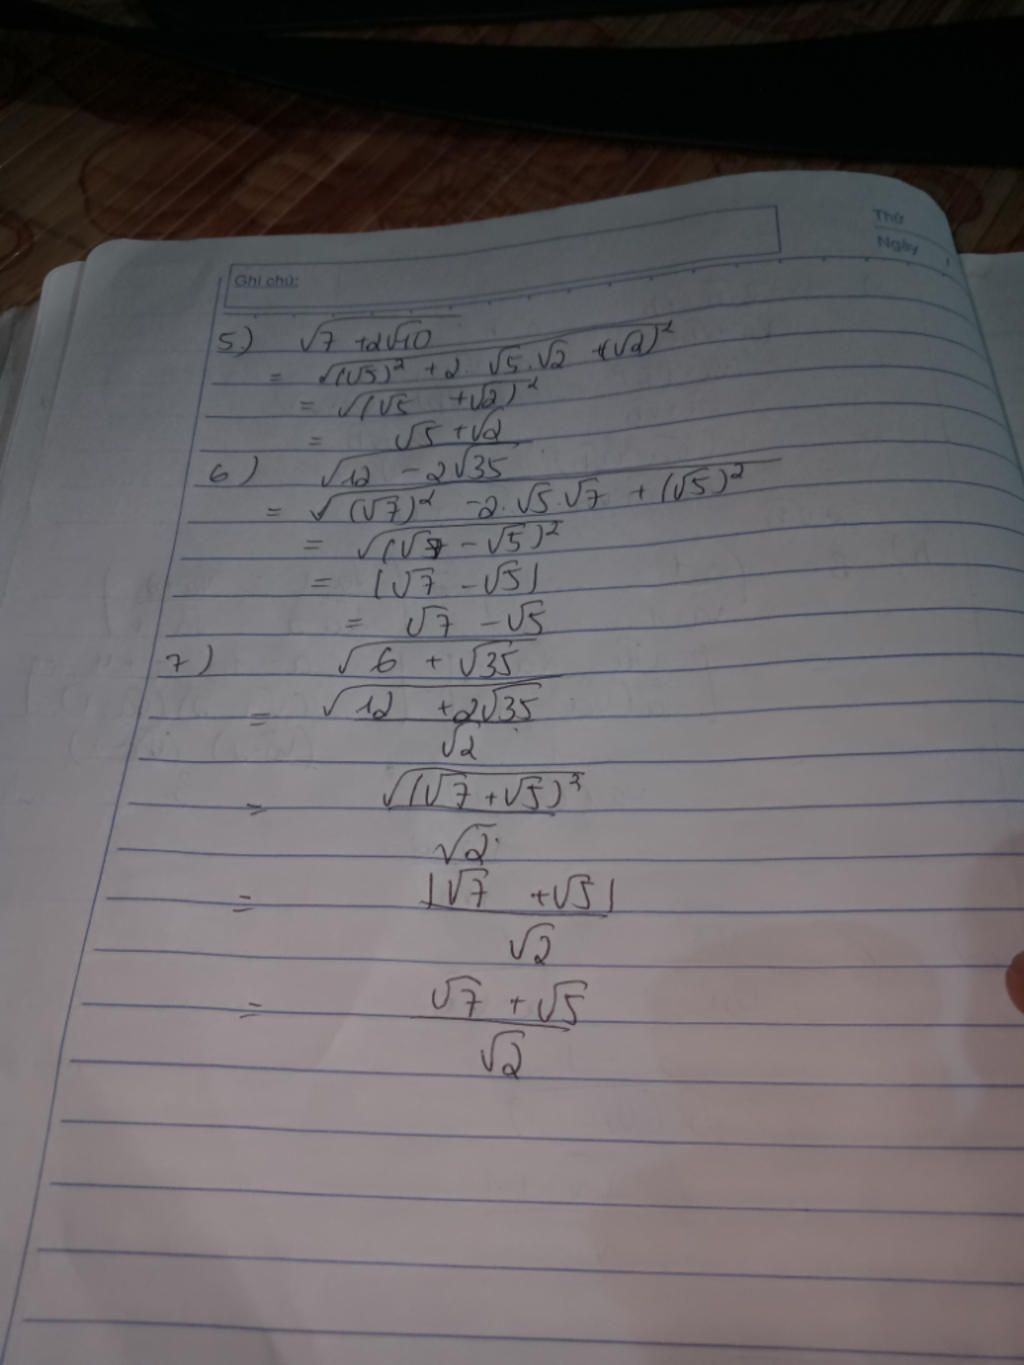 Thứ
Ngày
Ghi chú:
5) √(7 + 2√10)
= √((√5)² + 2.√5.√2 + (√2)²)
= √((√5 + √2)²)
= √5 + √2
6) √(12 - 2√35)
= √((√7)² - 2.√5.√7 + (√5)²)
= √((√7 - √5)²)
= |√7 - √5|
= √7 - √5
7) √(6 + √35)
= √(12 + 2√35)
√2
= √((√7 + √5)²)
√2
= |√7 + √5|
√2
= √7 + √5
√2